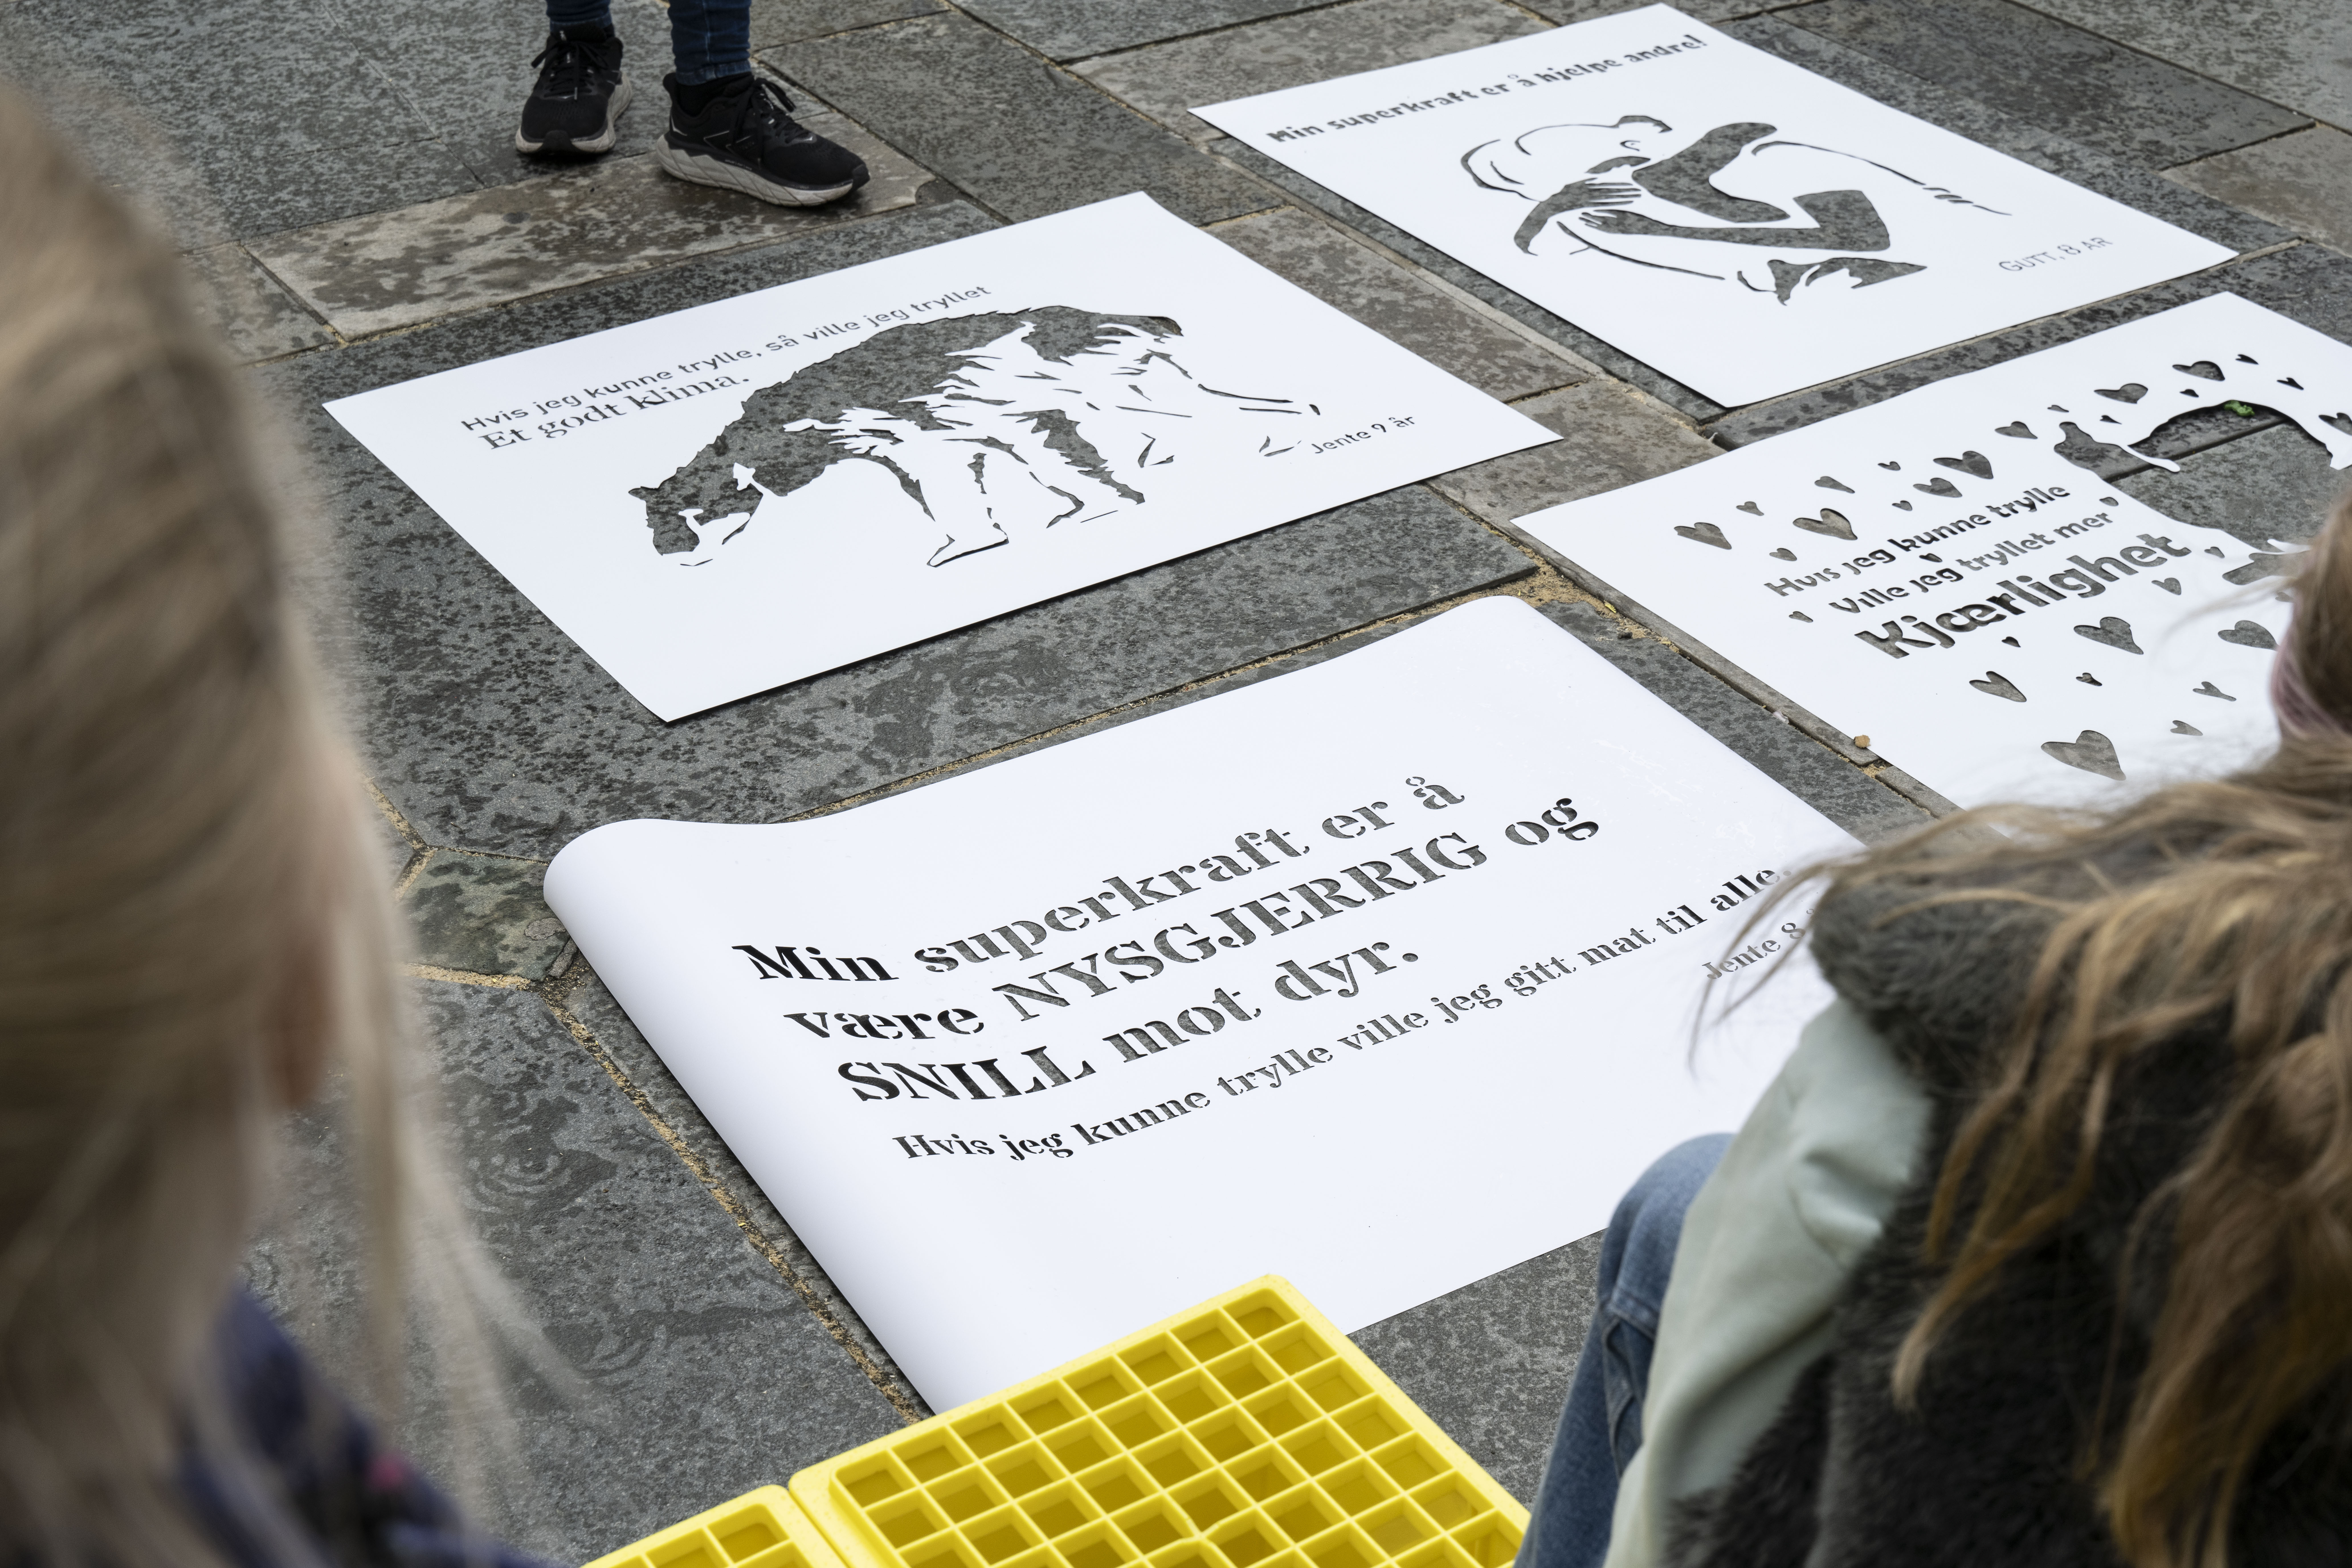 Min superkraft er å hjelpe andre!
GUTT, 8 ÅR
Hvis jeg kunne trylle, så ville jeg tryllet
Et godt klima.
Jente 9 år
Hvis jeg kunne trylle
Ville jeg tryllet mer
Kjærlighet
Min superkraft er å
være NYSGJERRIG og
SNILL mot dyr.
Hvis jeg kunne trylle ville jeg gitt mat til alle.
Jente 8